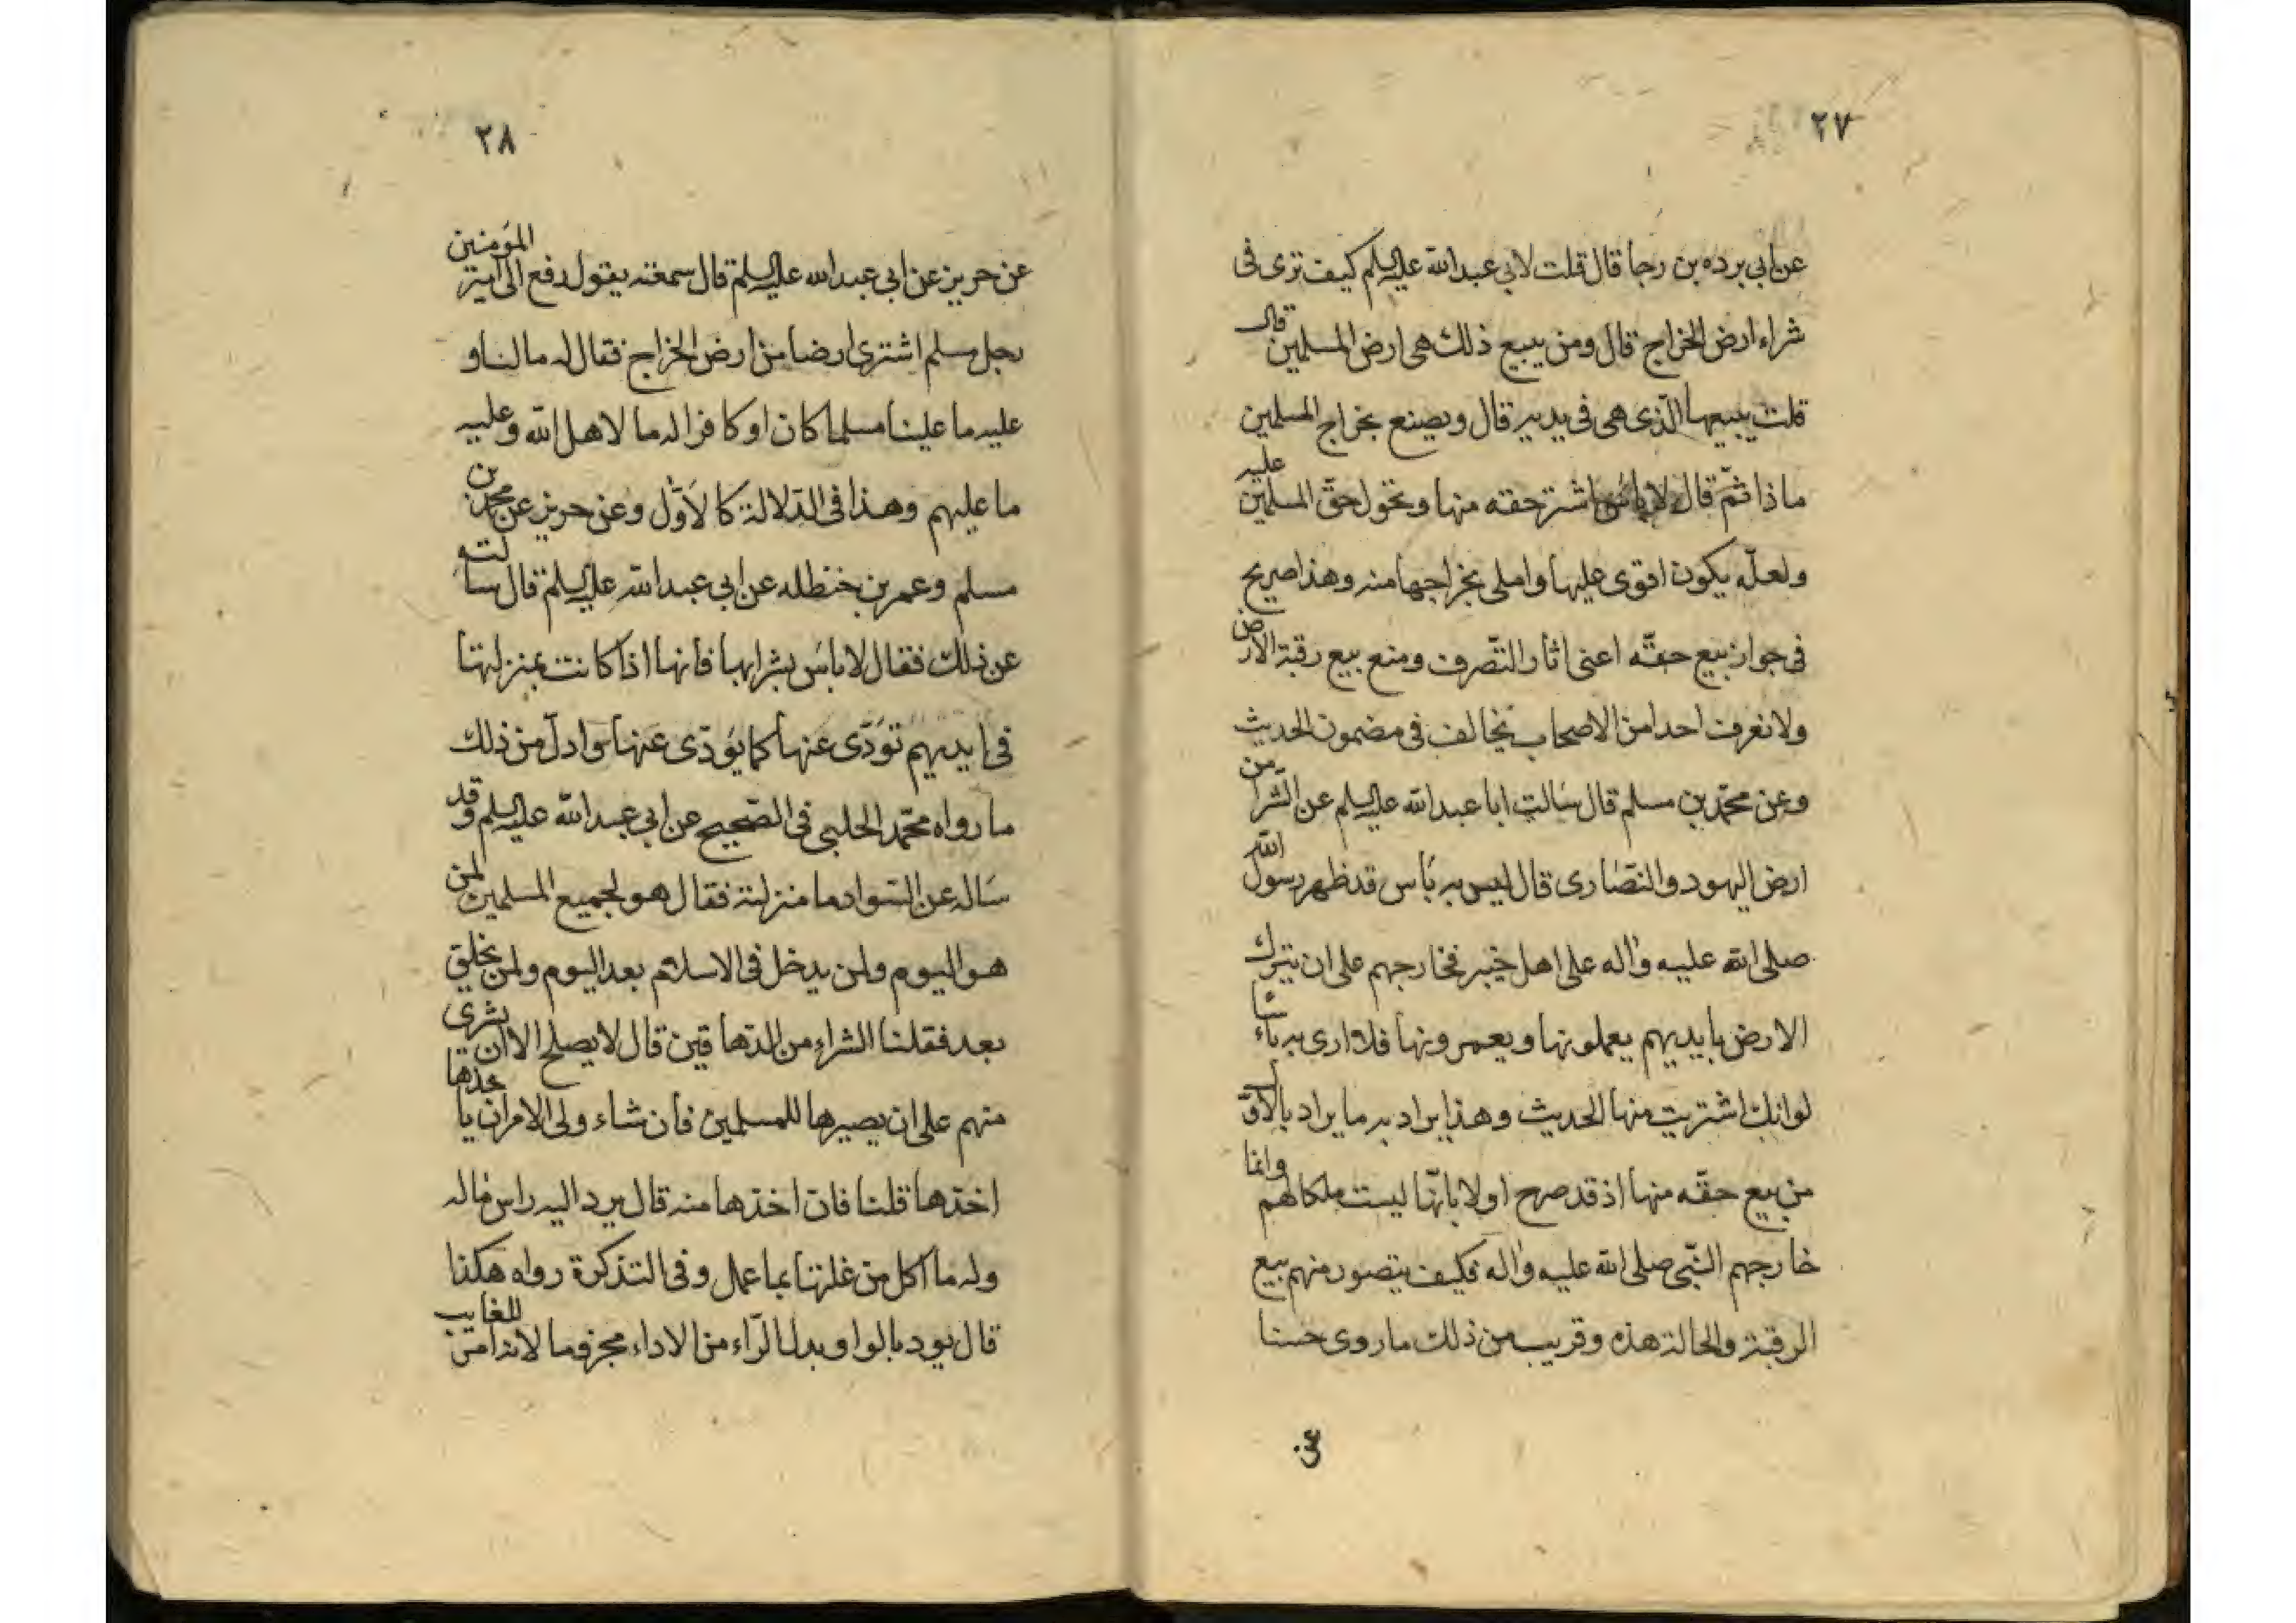 ٢٧
عن ابي برده بن رجا قال قلت لابي عبد الله عليه السلم كيف ترى فى
شراء ارض الخراج قال ومن يبيع ذلك هى ارض المسلمين قال
قلت يبيعها الّذى هى فى يديه قال ويصنع بخراج المسلمين
ماذا ثمّ قال لا باس اشتر حقه منها وتحول حقّ المسلمين عليه
ولعلّه يكون اقوى عليها واملى بخراجها منه وهذا صريح
فى جواز بيع حقّه اعنى اثار التّصرف ومنع بيع رقبة الارض
ولا نعرف احدا من الاصحاب يخالف فى مضمون الحديث
وعن محمّد بن مسلم قال سالت ابا عبد الله عليه السلم عن الشرا من
ارض اليهود والنصّارى قال ليس به بأس قد ظهر رسول الله
صلى الله عليه واله على اهل خيبر فخارجهم على ان يترك
الارض بايديهم يعملونها ويعمرونها فلا ارى به باء سا
لو انك اشتريت منها الحديث وهذا يراد به ما يراد بالاوّل
من بيع حقّه منها اذ قد صرح اولا بانّها ليست ملكا لهم وانما
خارجهم النّبى صلى الله عليه واله فكيف يتصور منهم بيع
الرقبة والحالة هذه وقريب من ذلك ما روى حسنا
عن
٢٨
عن حريز عن ابى عبد الله عليه السلم قال سمعته يقول دفع الى امير المؤمنين
رجل مسلم اشترى ارضا من ارض الخراج فقال له ما لنا و
عليه ما علينا مسلما كان او كافرا له ما لاهل الله وعليه
ما عليهم وهذا فى الدّلالة كالاوّل وعن حريز عن محمد بن
مسلم وعمر بن حنظله عن ابي عبد الله عليه السلم قال سالته
عن ذلك فقال لا باس بشرايها فانها اذا كانت بمنزلتها
فى ايديهم تؤدّى عنها كما يؤدّى عنها وادلّ من ذلك
ما رواه محمّد الحلبى فى الصّحيح عن ابى عبد الله عليه السلم وقد
ساله عن السّواد ما منزلته فقال هو لجميع المسلمين لمن
هو اليوم ولمن يدخل فى الاسلام بعد اليوم ولمن يخلق
بعد فقلنا الشراء من الدّهاقين قال لا يصلح الا ان يشرى
منهم على ان يصيرها للمسلمين فان شاء ولى الامر ان ياخذها
اخذها قلنا فان اخذها منه قال يرد اليه راس ماله
وله ما اكل من غلتها بما عمل وفى التذكرة رواه هكذا
قال يود بالواو بدل الرّاء من الاداء مجزوما لانه امر للغايب